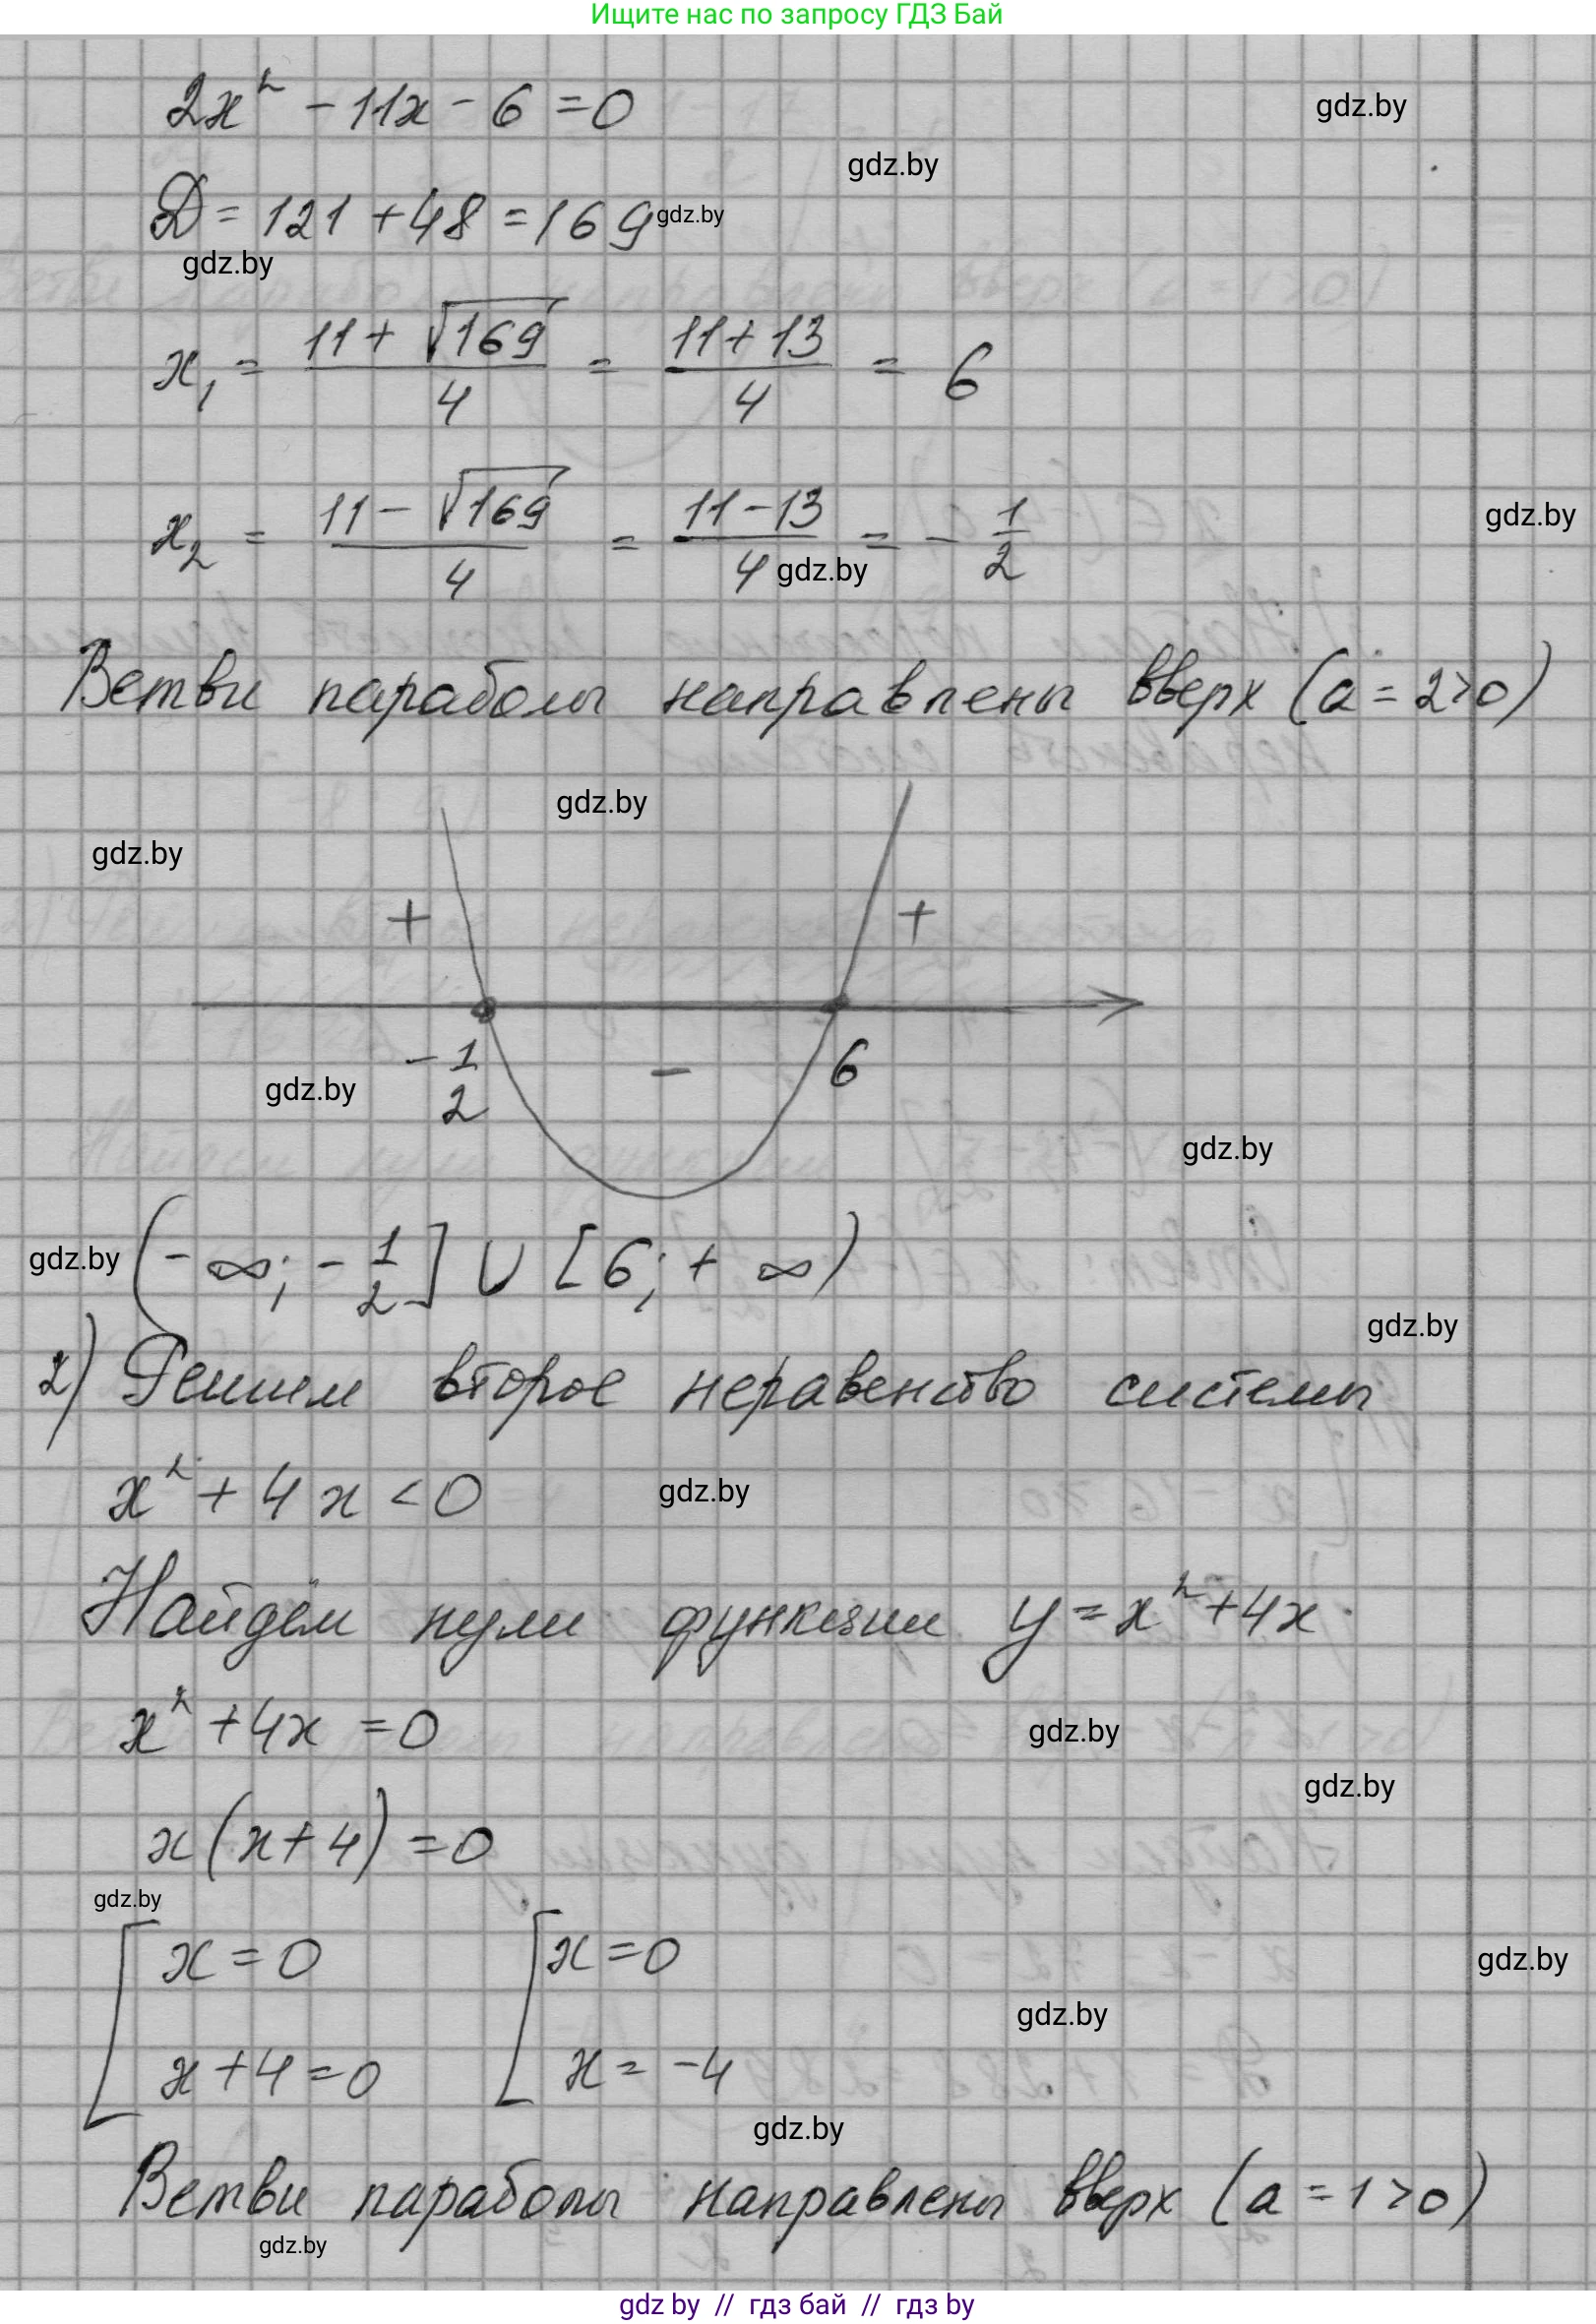 Ищите нас по запросу ГДЗ Бай
2x² - 11x - 6 = 0
gdz.by
gdz.by
Д = 121 + 48 = 169
gdz.by
gdz.by
x₁ = (11 + √169)/4 = (11 + 13)/4 = 6
x₂ = (11 - √169)/4 = (11 - 13)/4 = - 1/2
gdz.by
gdz.by
Ветви параболы направлены вверх (a = 2 > 0)
gdz.by
gdz.by
+ +
- 1/2 - 6
gdz.by
gdz.by
gdz.by
(-∞; - 1/2] ∪ [6; + ∞)
gdz.by
2) Решим второе неравенство системы
x² + 4x < 0
gdz.by
Найдём нули функции y = x² + 4x
x² + 4x = 0
gdz.by
gdz.by
x(x + 4) = 0
gdz.by
[ x = 0 [ x = 0
gdz.by
gdz.by
x + 4 = 0 x = -4
gdz.by
Ветви параболы направлены вверх (a = 1 > 0)
gdz.by
gdz by // гдз бай // гдз by